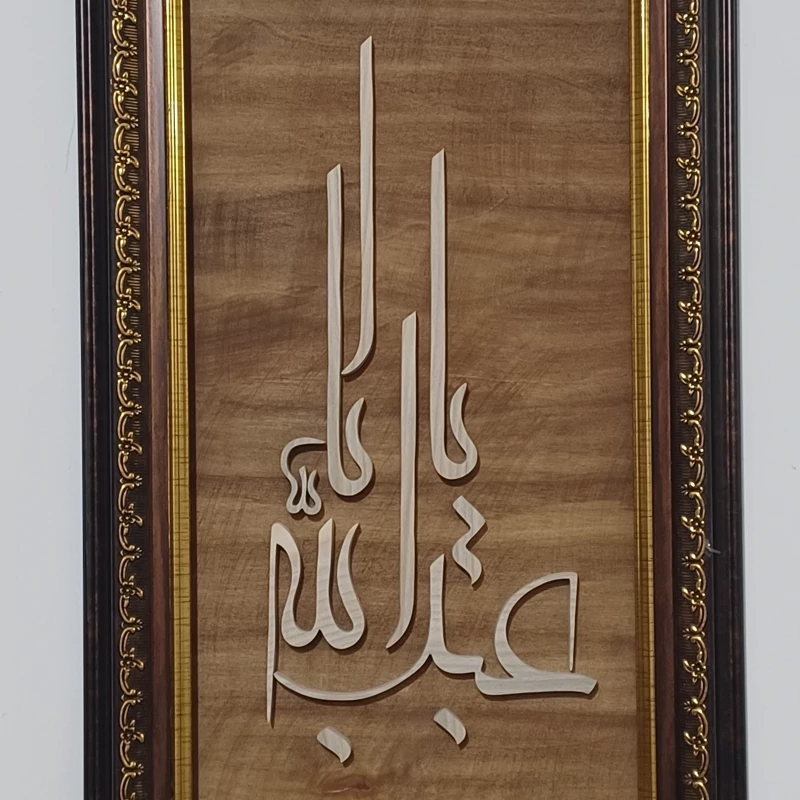 يا ابا
عبدالله